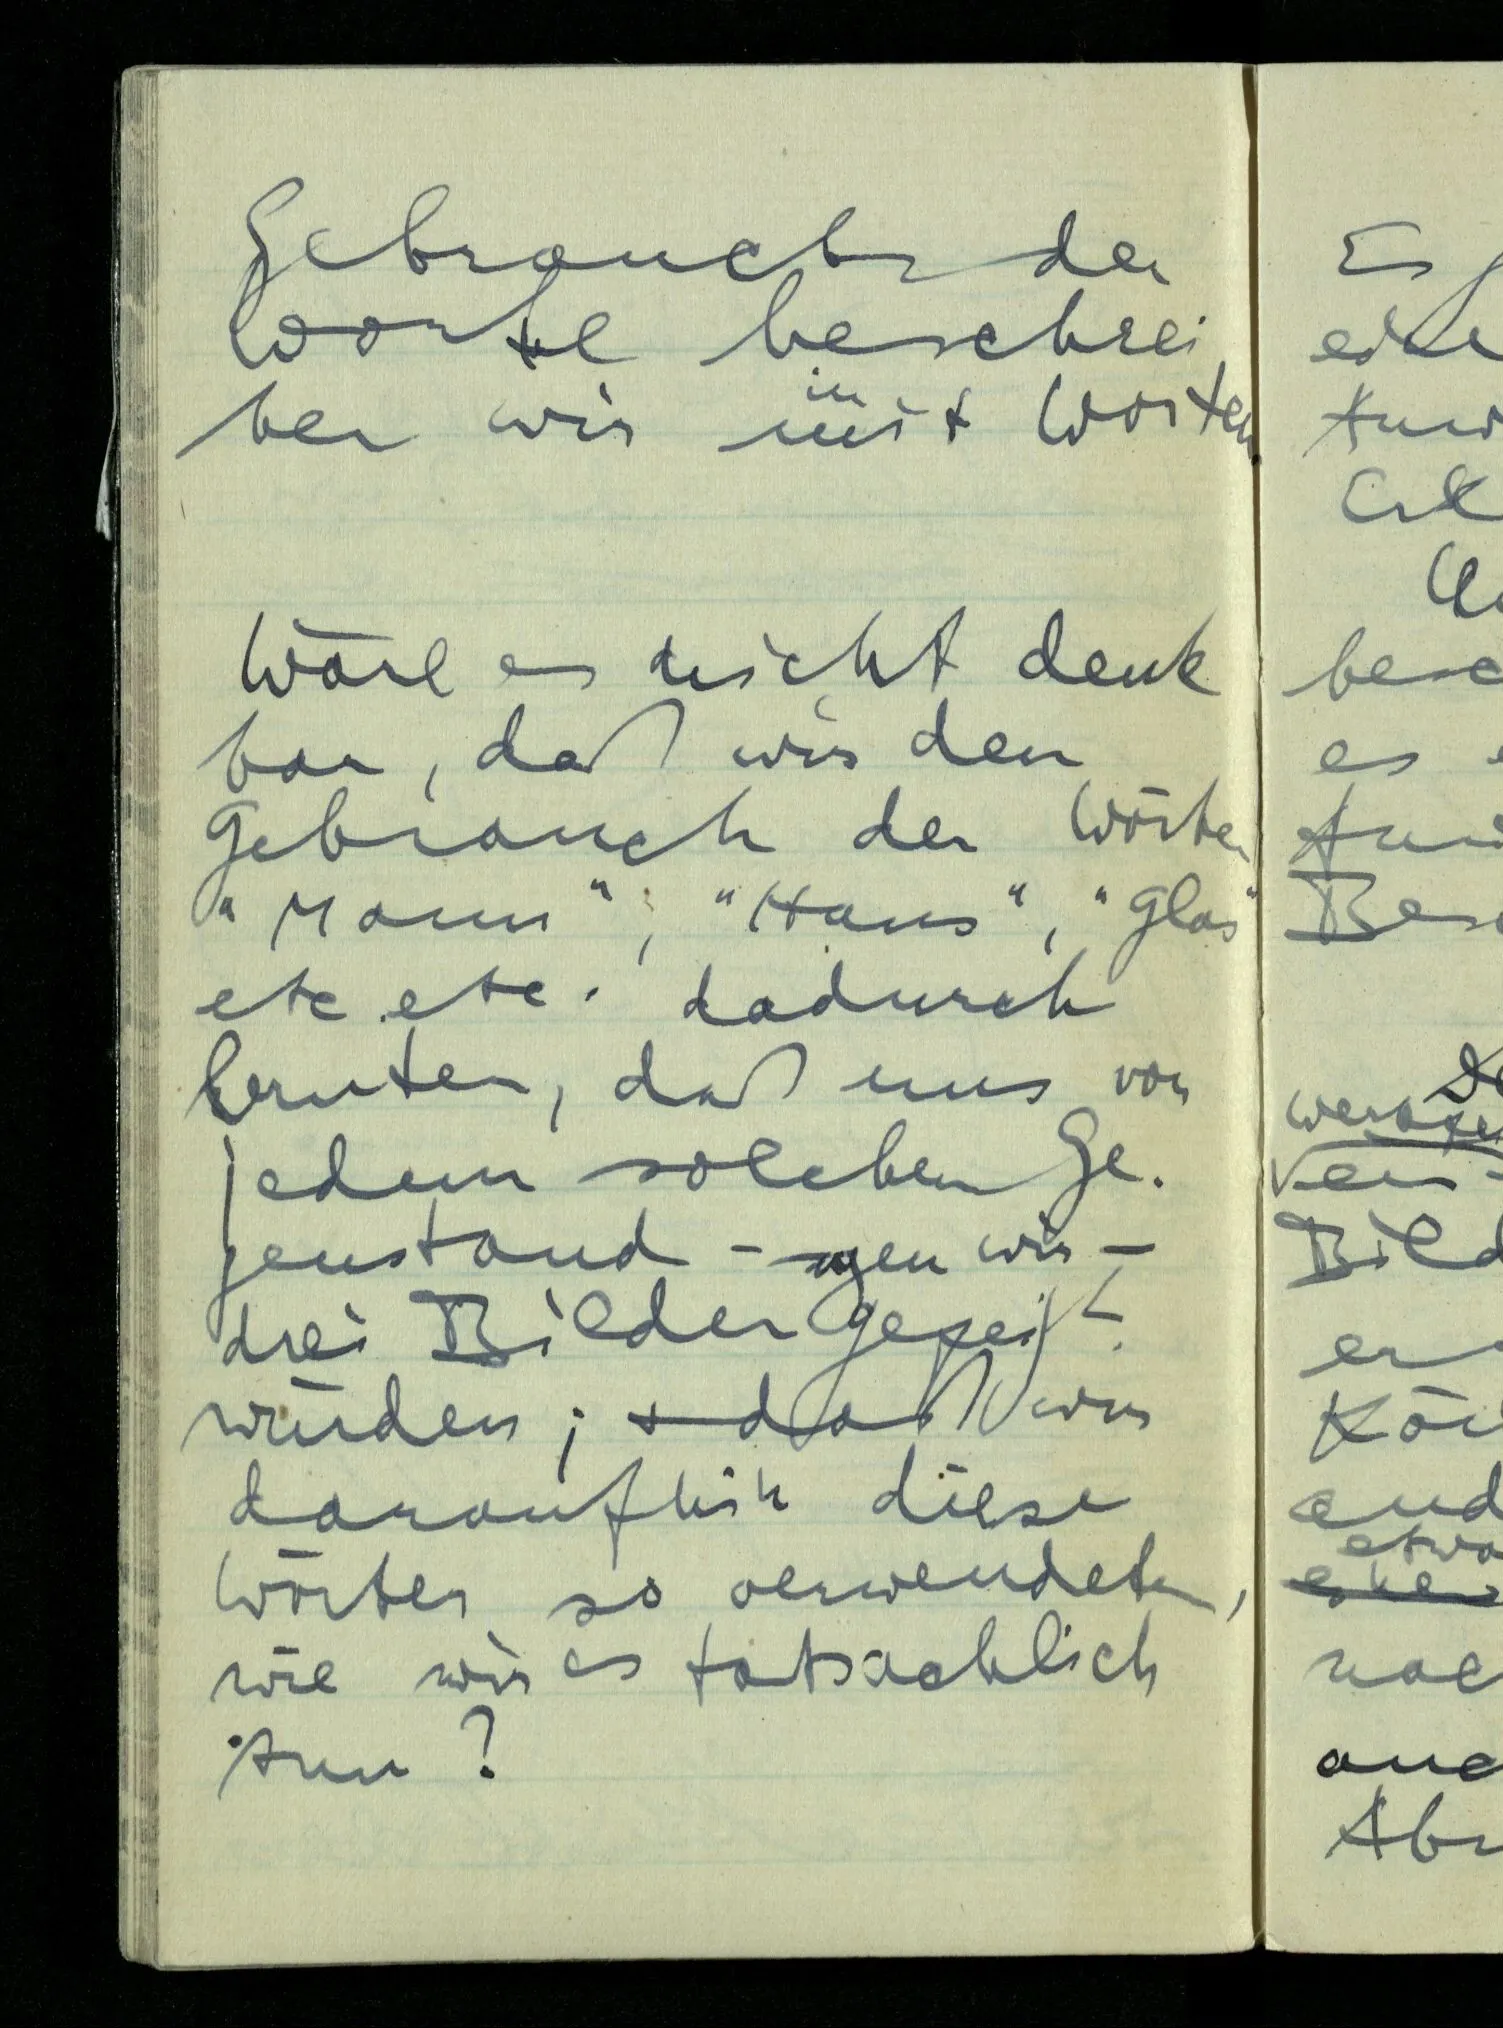 Gebrauch der
Worte beschrei
ben wir mit Worten.
Wäre es nicht denk
bar, daß wir den
Gebrauch der Wörter
"Mann", "Haus", "Glas"
etc. etc. dadurch
lernten, daß uns von
jedem solchen Ge-
genstand - sagen wir -
drei Bilder gezeigt
würden; + daß wir
daraufhin diese
Wörter so verwendeten,
wie wir es tatsächlich
tun?
Es
eine
besc
es
Bild
Kön
and
etwa
noc